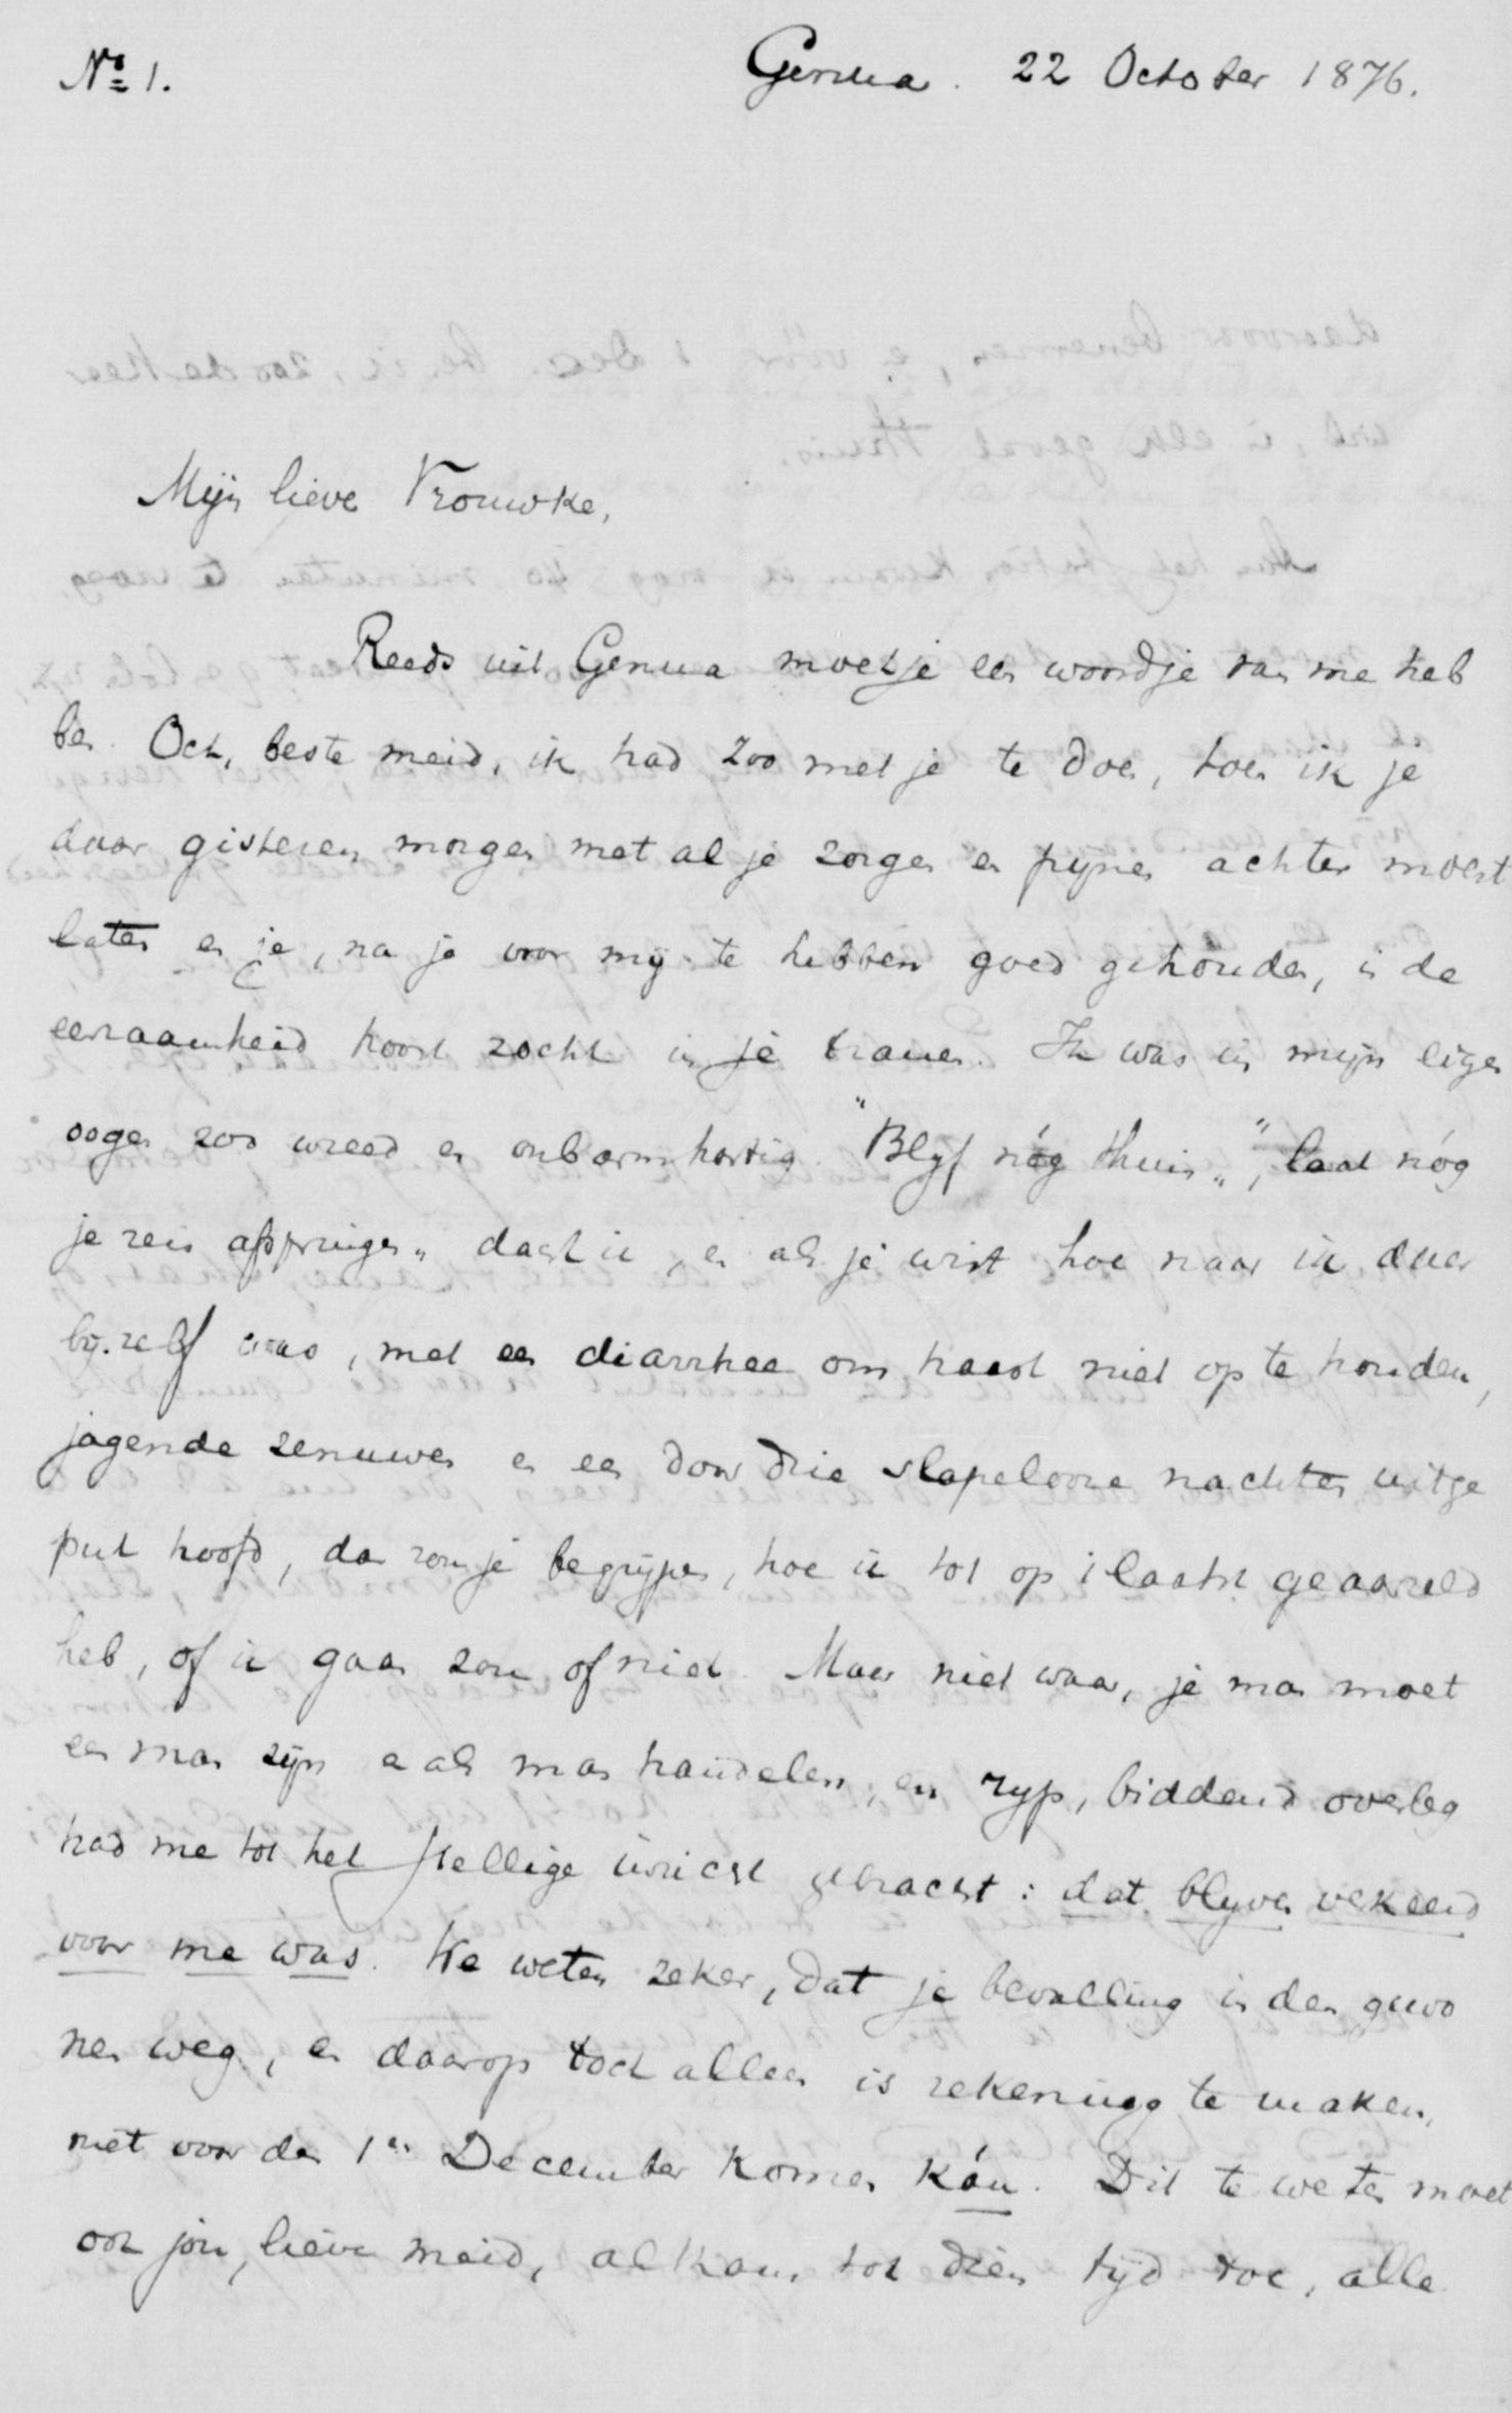 No 1.
Genua. 22 October 1876.
Mijn lieve Vrouwke,
Reeds uit Genua moet je een woordje van me heb
ben. Och, beste meid, ik had zoo met je te doen, toen ik je
daar gisteren morgen met al je zorgen en pynen achter moest
laten en je, na je voor mij te hebben goed gehouden, in de
eenzaamheid troost zocht in je tranen. Ik was in mijn eigen
oogen zoo wreed en onbarmhartig. "Blyf nóg thuis„, "laat nóg
je reis afspringen„ dacht ik, en als je wist hoe naar ik daar
bij zelf was, met een diarrhee om haast niet op te houden,
jagende zenuwen en een door drie slapelooze nachten uitge
put hoofd, dan zou je begrijpen, hoe ik tot op 't laatst geaarzeld
heb, of ik gaan zou of niet. Maar niet waar, je man moet
een man zijn en als man handelen, en ryp, biddend overleg
had me tot het stellige inzicht gebracht: dat blyven verkeerd
voor me was. We weten zeker, dat je bevalling in den gewo
nen weg, en daarop toch alleen is rekening te maken,
niet voor den 1en December komen kán. Dit te weten moet
ook jou, lieve meid, al kan, tot dien tijd toe, alle